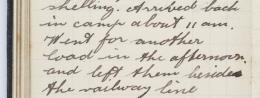 shelling. Arrived back
in camp about 11 am.
Went for another
load in the afternoon.
and left them besides
the railway line